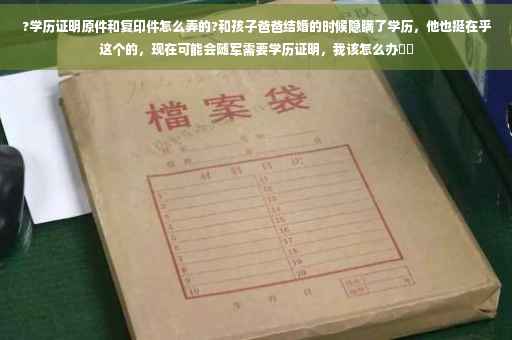 ?学历证明原件和复印件怎么弄的?和孩子爸爸结婚的时候隐瞒了学历，他也挺在乎
这个的，现在可能会随军需要学历证明，我该怎么办
檔案袋
材料目次
1
2
3
4
5
6
7
8
9
10
11
12
13
14
15
16
17
18
19
20
年 月 日